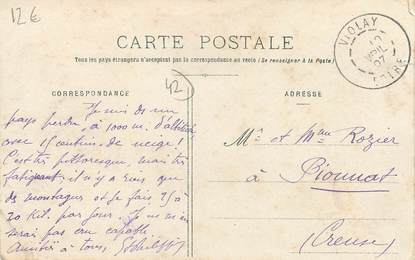 12€
CARTE POSTALE
Tous les pays étrangers n'acceptent pas la correspondance au verso (Se renseigner à la Poste)
CORRESPONDANCE
ADRESSE
42
VIOLAY
LOIRE
Je suis dans un
pays perdu, à 1000 m. d'altitude
avec 15 centim. de neige!
C'est très pittoresque, mais très
fatigant; il n'y a rien que
des montagnes et je fais 15 à
20 kil. par jour. Je ne m'en
serais pas cru capable.
Amitiés à tous,
Mr et Mme Rozier
à Pionnat
(Creuse)